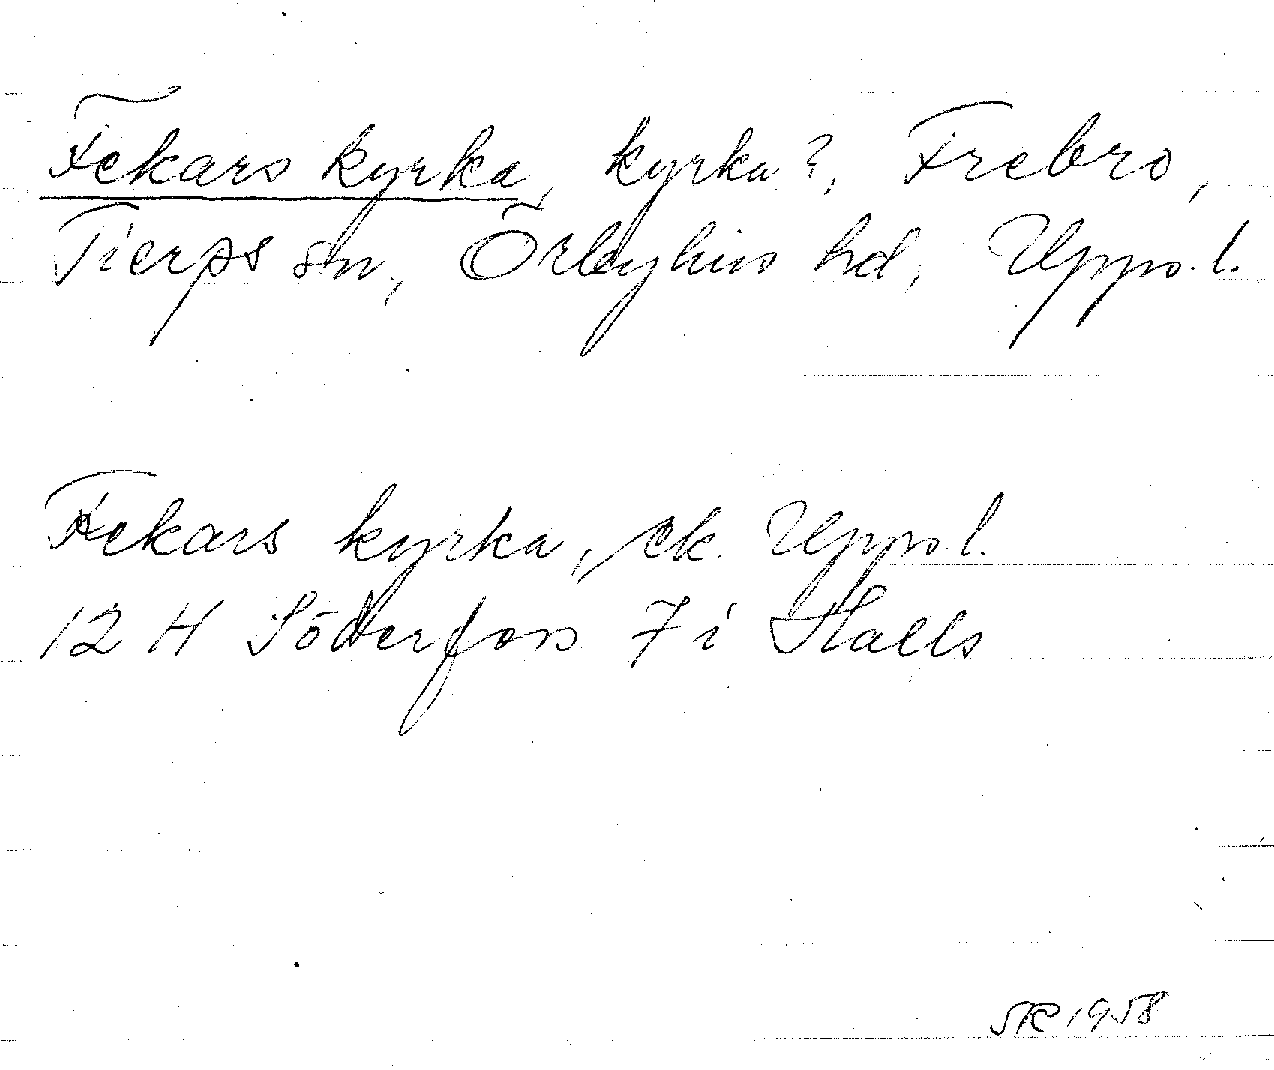 Fekars kyrka, kyrka?, Frebro,
Tierps sn, Örbyhus hd, Uppl.
Fekars kyrka, ek. Uppl.
12 H Söderfors 7 i Halls
SR 1958